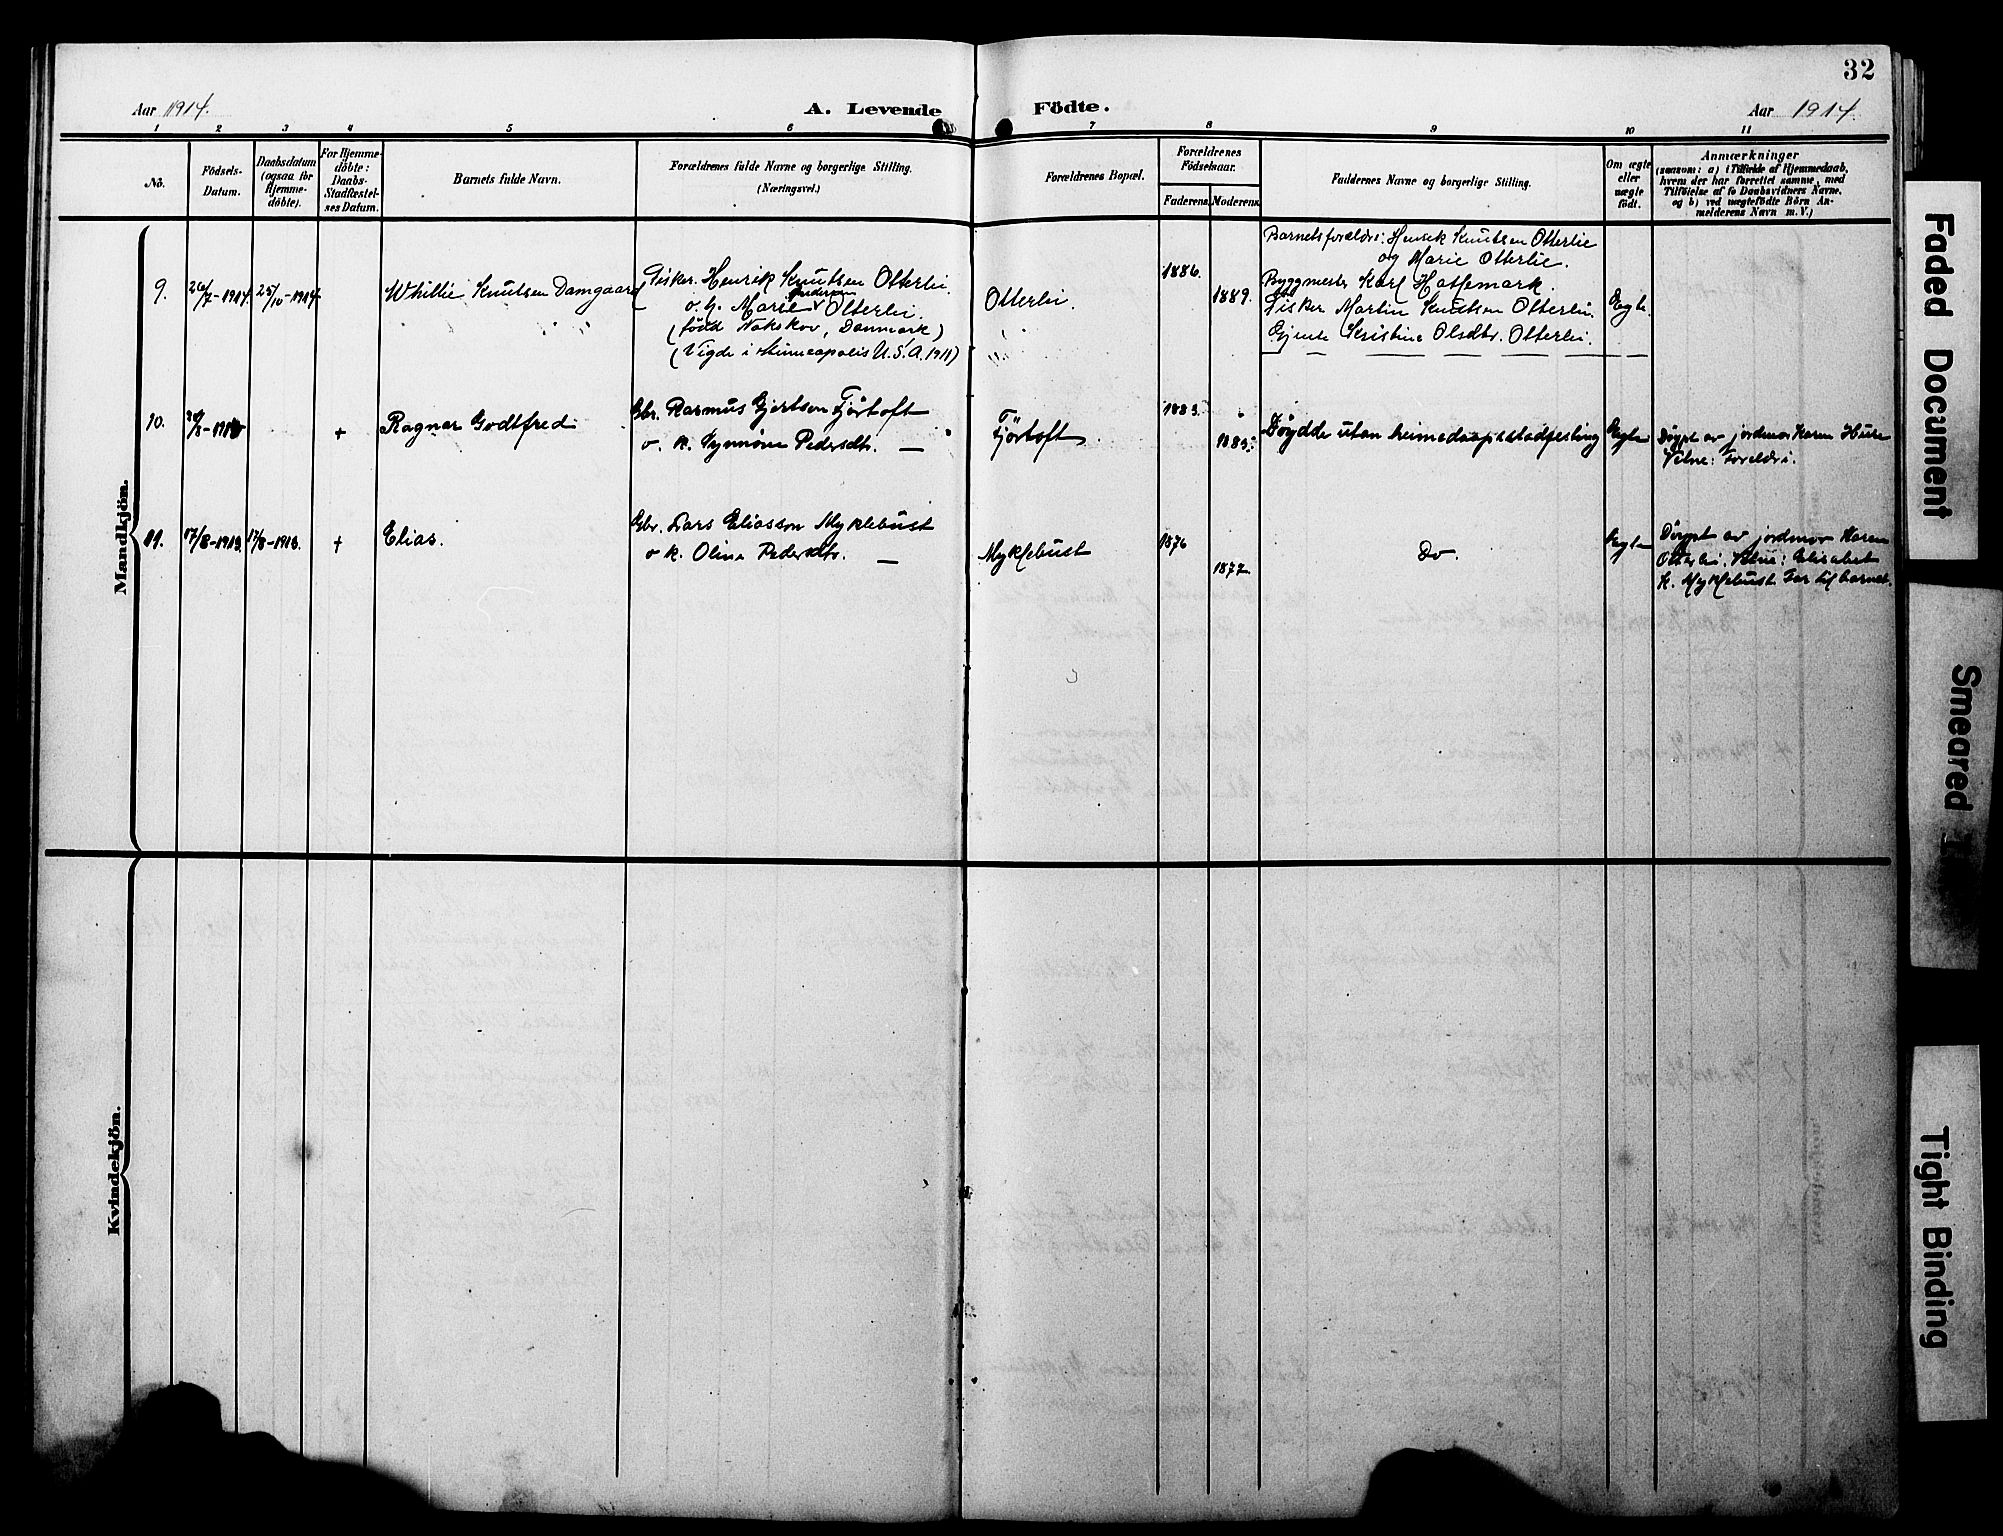 32
Aar 1914. A. Levende Födte. Aar 1914.
1 2 3 4 5 6 7 8 9 10 11
No.
Födsels-
Datum.
Daabsdatum
(ogsaa for
Hjemme-
döbte).
For Hjemme-
döbte:
Daabs-
Stadfæstel-
ses Datum.
Barnets fulde Navn.
Forældrenes fulde Navne og borgerlige Stilling.
(Næringsvei.)
Forældrenes Bopæl.
Forældrenes
Födselsaar.
Faderens. Moderens.
Faddernes Navne og borgerlige Stilling.
Om ægte
eller
uægte
födt.
Anmærkninger
(saasom: a) i Tilfælde af Hjemmedaab,
hvem der har forrettet samme, med
Tilföielse af to Daabsvidners Navne,
og b) ved uægtefödte Börn An-
melderens Navn m. V.)
Mandkjön.
9. 26/7-1914. 25/10-1914. Whillie Knutsen Damgaard
Fisker. Henrik Knutsen Otterlei.
o. h. Marie Otterlei.
(född Nakskov, Danmark)
(Vigde i Minneapolis U.S.A. 1911)
Otterlei.
1886.
1889.
Barnets foreldre: Henrik Knutsen Otterlie
og Marie Otterlie.
Byggmester Karl Hatlemark.
Fisker Martin Knutsen Otterlei.
Gjente Kristine Olsdtr. Otterlei.
Egte.
10. + Ragnar Godtfred
Gbr. Rasmus Gjertson Fjörtoft
o. k. Synnöve Pedersdtr. —
Fjörtoft
1883
1885
Döydde utan heimedaapsstadfesting
Egte
Döypt av jordmor Karen Huse
Vitne: Foreldri.
11. 17/8-1913. 17/8-1913. + Elias.
Gbr. Lars Eliasson Myklebust
o k. Oline Pedersdtr. —
Myklebust
1876
1872
Do.
Egte
Döypt av jordmor Karen
Otterlei. Vitne: Elisabet
K. Myklebust Far til barnet.
Kvindekjön.
Faded Document
Smeared
Tight Binding